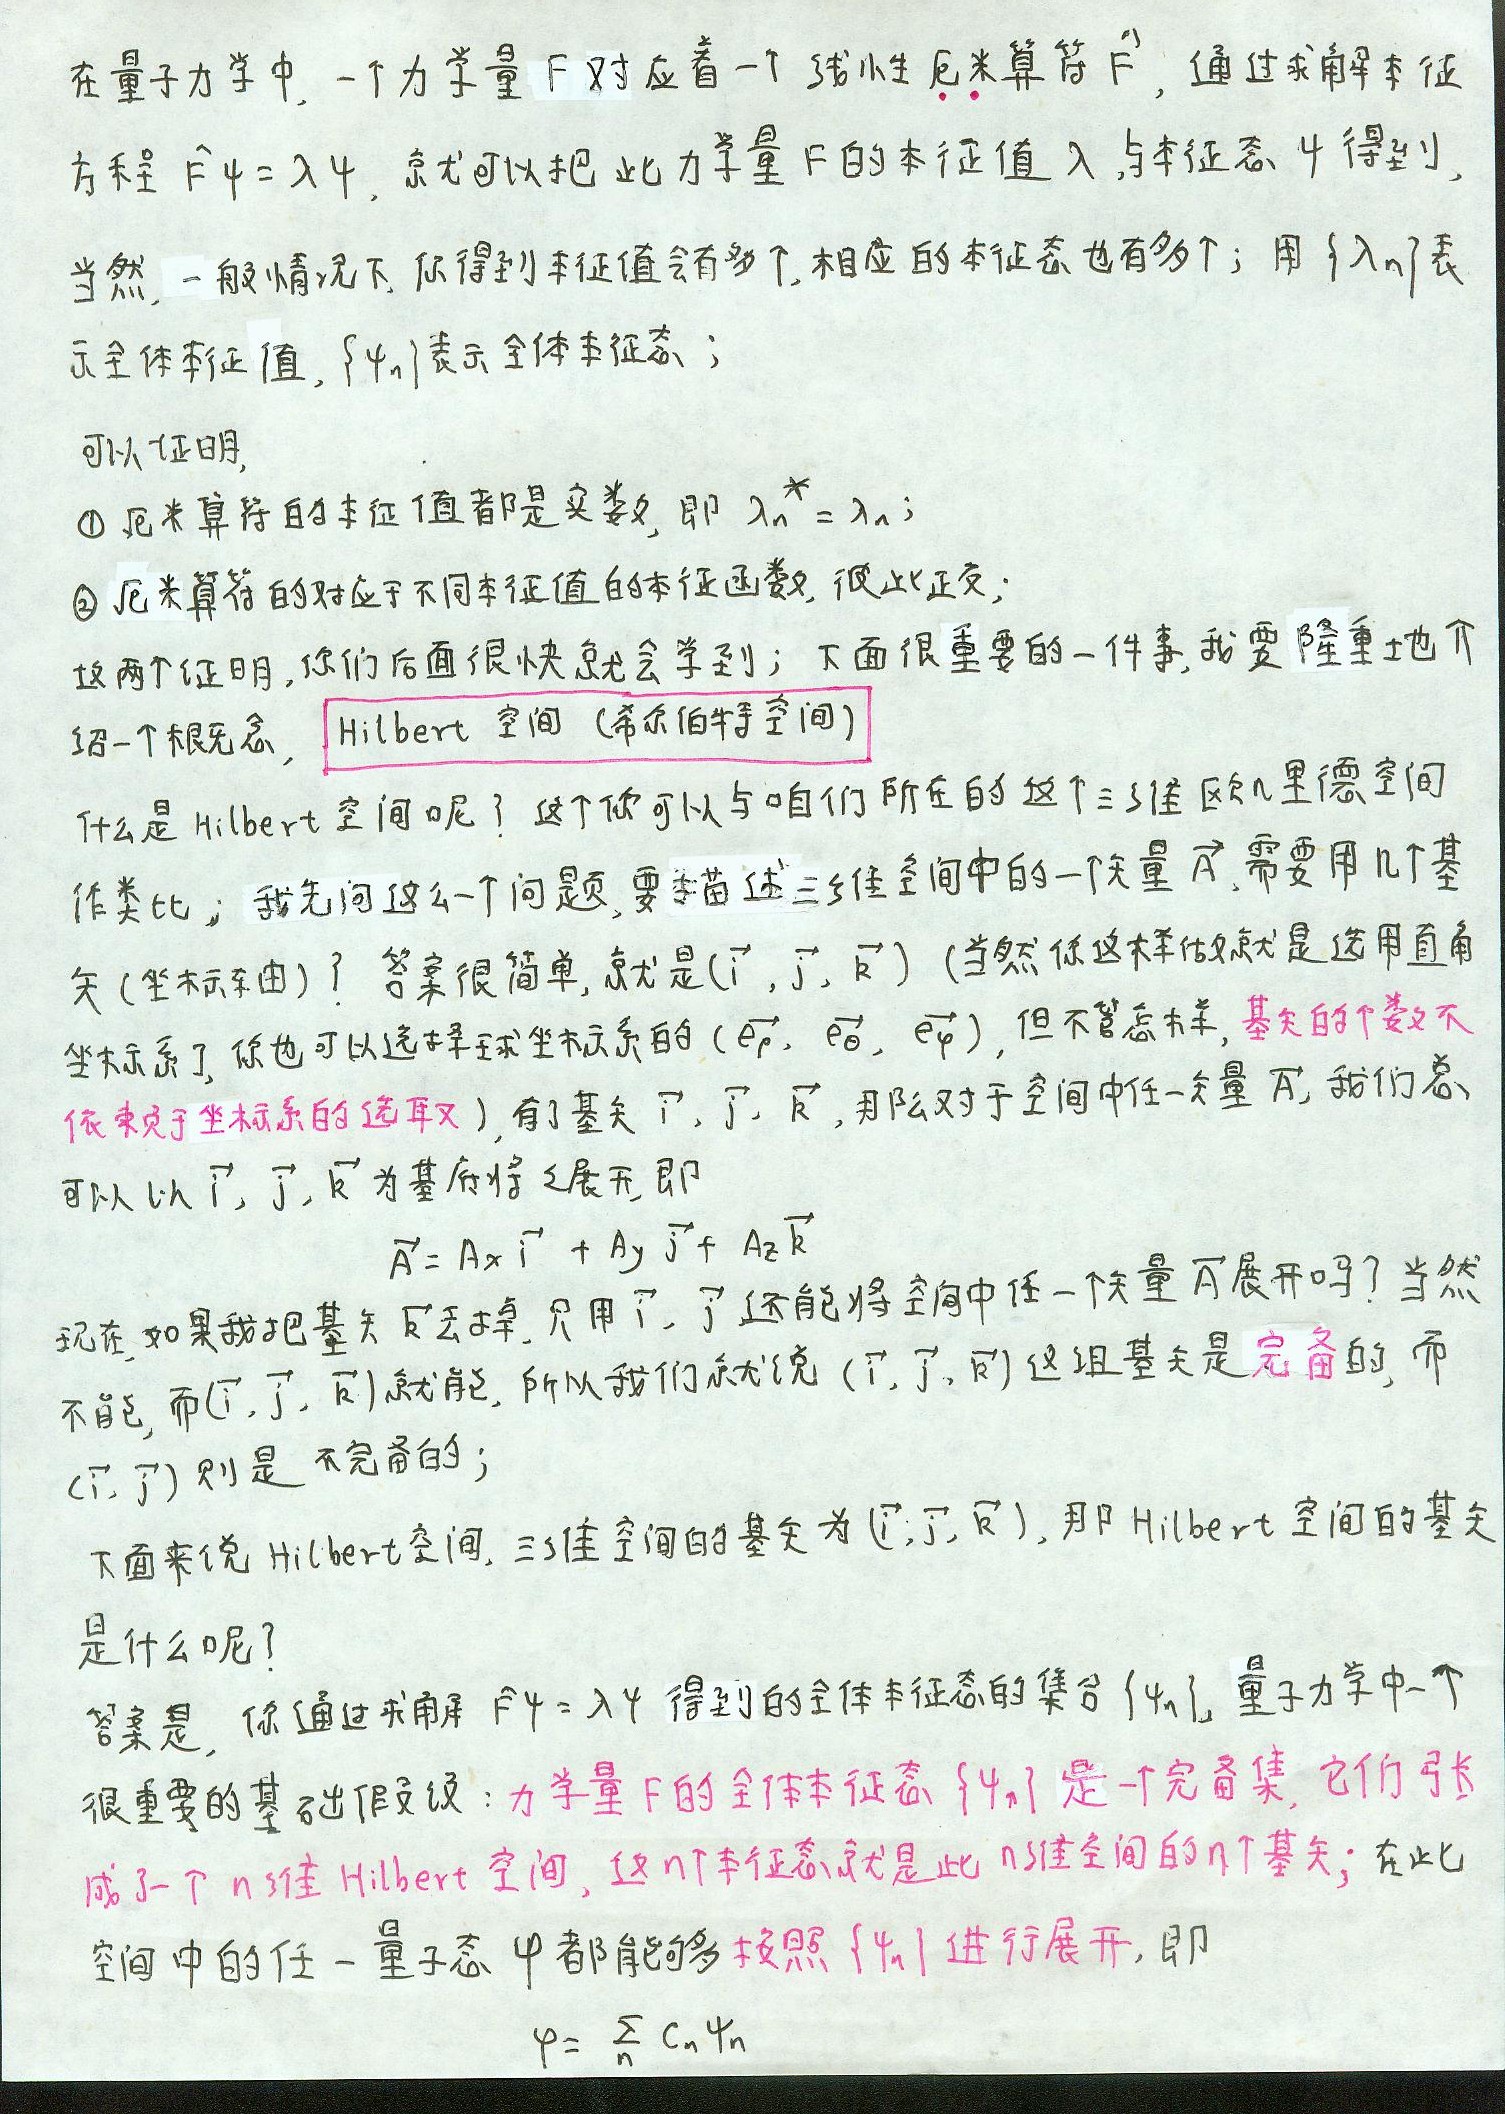 在量子力学中,一个力学量F对应着一个线性厄米算符F̂,通过求解本征
方程 F̂ψ=λψ,就可以把此力学量F的本征值λ与本征态ψ得到,
当然,一般情况下,你得到本征值会有多个,相应的本征态也有多个;用{λn}表
示全体本征值,{ψn}表示全体本征态;
可以证明,
①厄米算符的本征值都是实数,即 λn*=λn;
②厄米算符的对应于不同本征值的本征函数,彼此正交;
这两个证明,你们后面很快就会学到;下面很重要的一件事,我要隆重地介
绍一个概念,Hilbert 空间(希尔伯特空间)
什么是Hilbert空间呢?这个你可以与咱们所在的这个三维欧几里德空间
作类比;我先问这么一个问题,要描述三维空间中的一个矢量A⃗,需要用几个基
矢(坐标轴)?答案很简单,就是(i⃗,j⃗,k⃗)(当然你这样做就是选用直角
坐标系了,你也可以选择球坐标系的(eρ⃗,eθ⃗,eφ⃗),但不管怎样,基矢的个数不
依赖于坐标系的选取),有了基矢i⃗,j⃗,k⃗,那么对于空间中任一矢量A⃗,我们总
可以以i⃗,j⃗,k⃗为基底将之展开,即
A⃗=Ax i⃗ + Ay j⃗ + Az k⃗
现在,如果我把基矢k⃗丢掉,只用i⃗,j⃗还能将空间中任一个矢量A⃗展开吗?当然
不能,而(i⃗,j⃗,k⃗)就能,所以我们就说(i⃗,j⃗,k⃗)这组基矢是完备的,而
(i⃗,j⃗)则是不完备的;
下面来说Hilbert空间,三维空间的基矢为(i⃗,j⃗,k⃗),那Hilbert空间的基矢
是什么呢?
答案是,你通过求解 F̂ψ=λψ 得到的全体本征态的集合{ψn},量子力学中一个
很重要的基础假设:力学量F的全体本征态{ψn}是一个完备集,它们张
成了一个n维Hilbert空间,这n个本征态就是此n维空间的n个基矢;在此
空间中的任一量子态φ都能够按照{ψn}进行展开,即
φ=∑n Cnψn